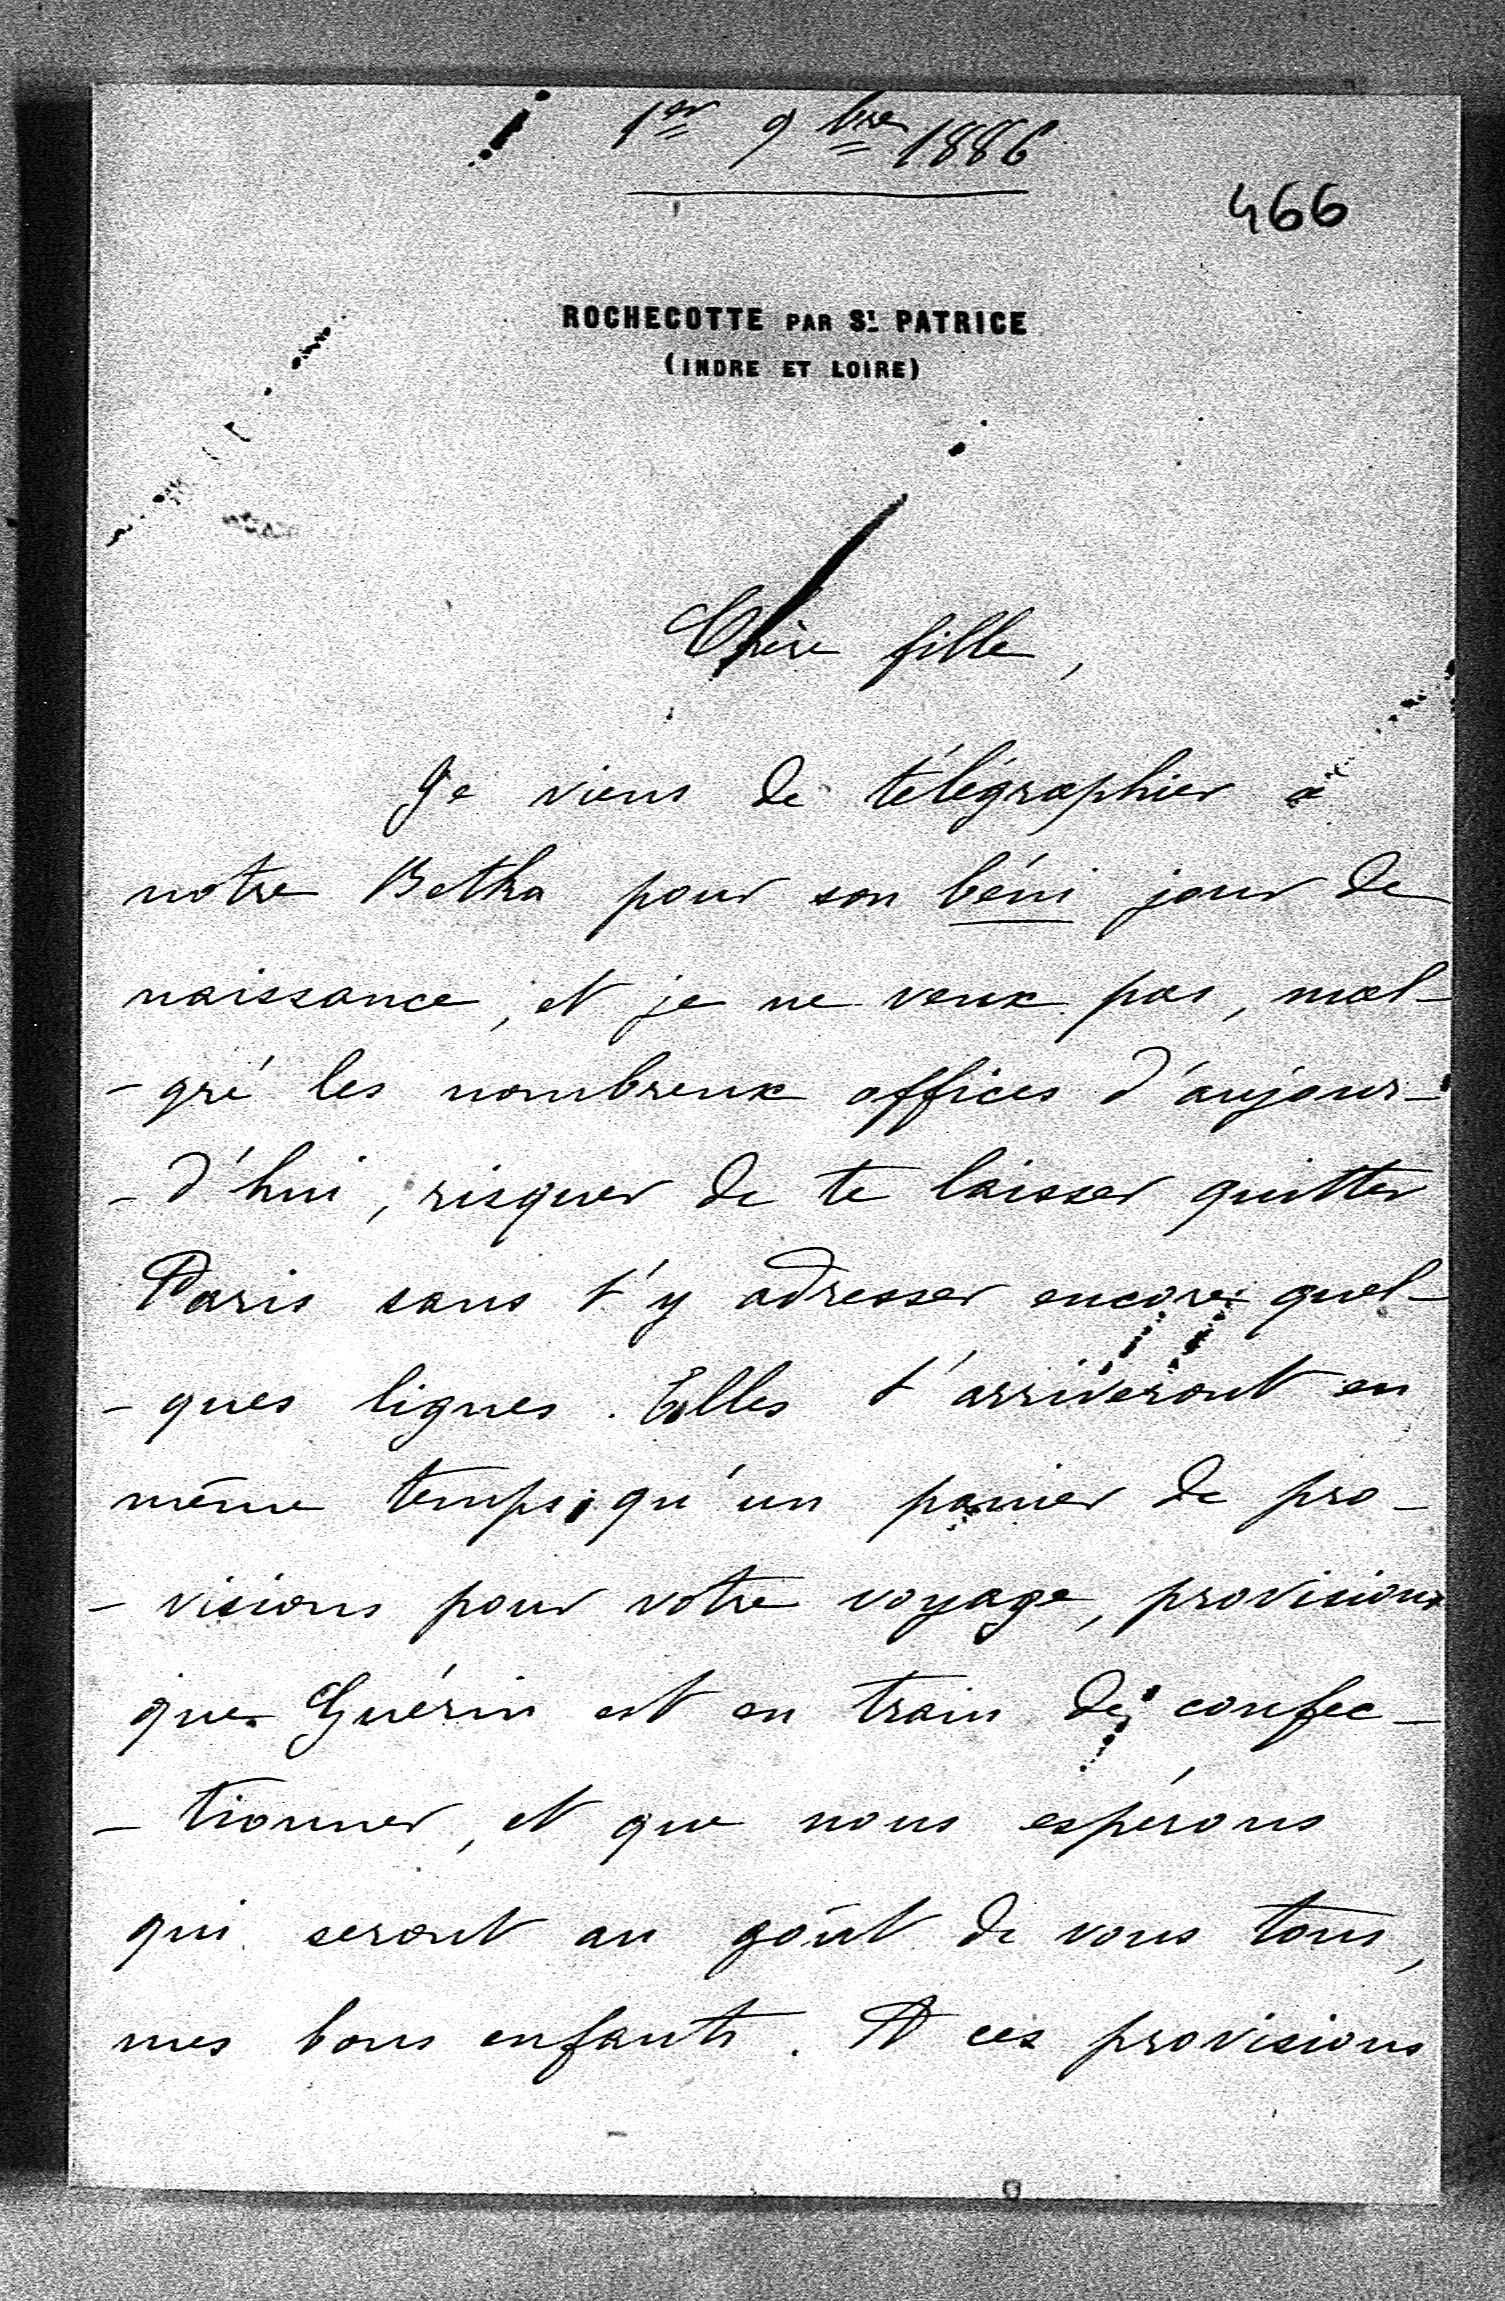 1er 9bre 1886
466
ROCHECOTTE PAR St PATRICE
(INDRE ET LOIRE)
Chère fille,
Je viens de télégraphier à
notre Betka pour son béni jour de
naissance, et je ne veux pas, mal-
-gré les nombreux offices d'aujour-
-d'hui, risquer de te laisser quitter
Paris sans t'y adresser encore quel-
-ques lignes. Elles t'arriveront en
même temps qu'un panier de pro-
-visions pour votre voyage, provisions
que Guérin est en train de confec-
-tionner, et que nous espérons
qui seront au goût de vous tous,
mes bons enfants. A ces provisions